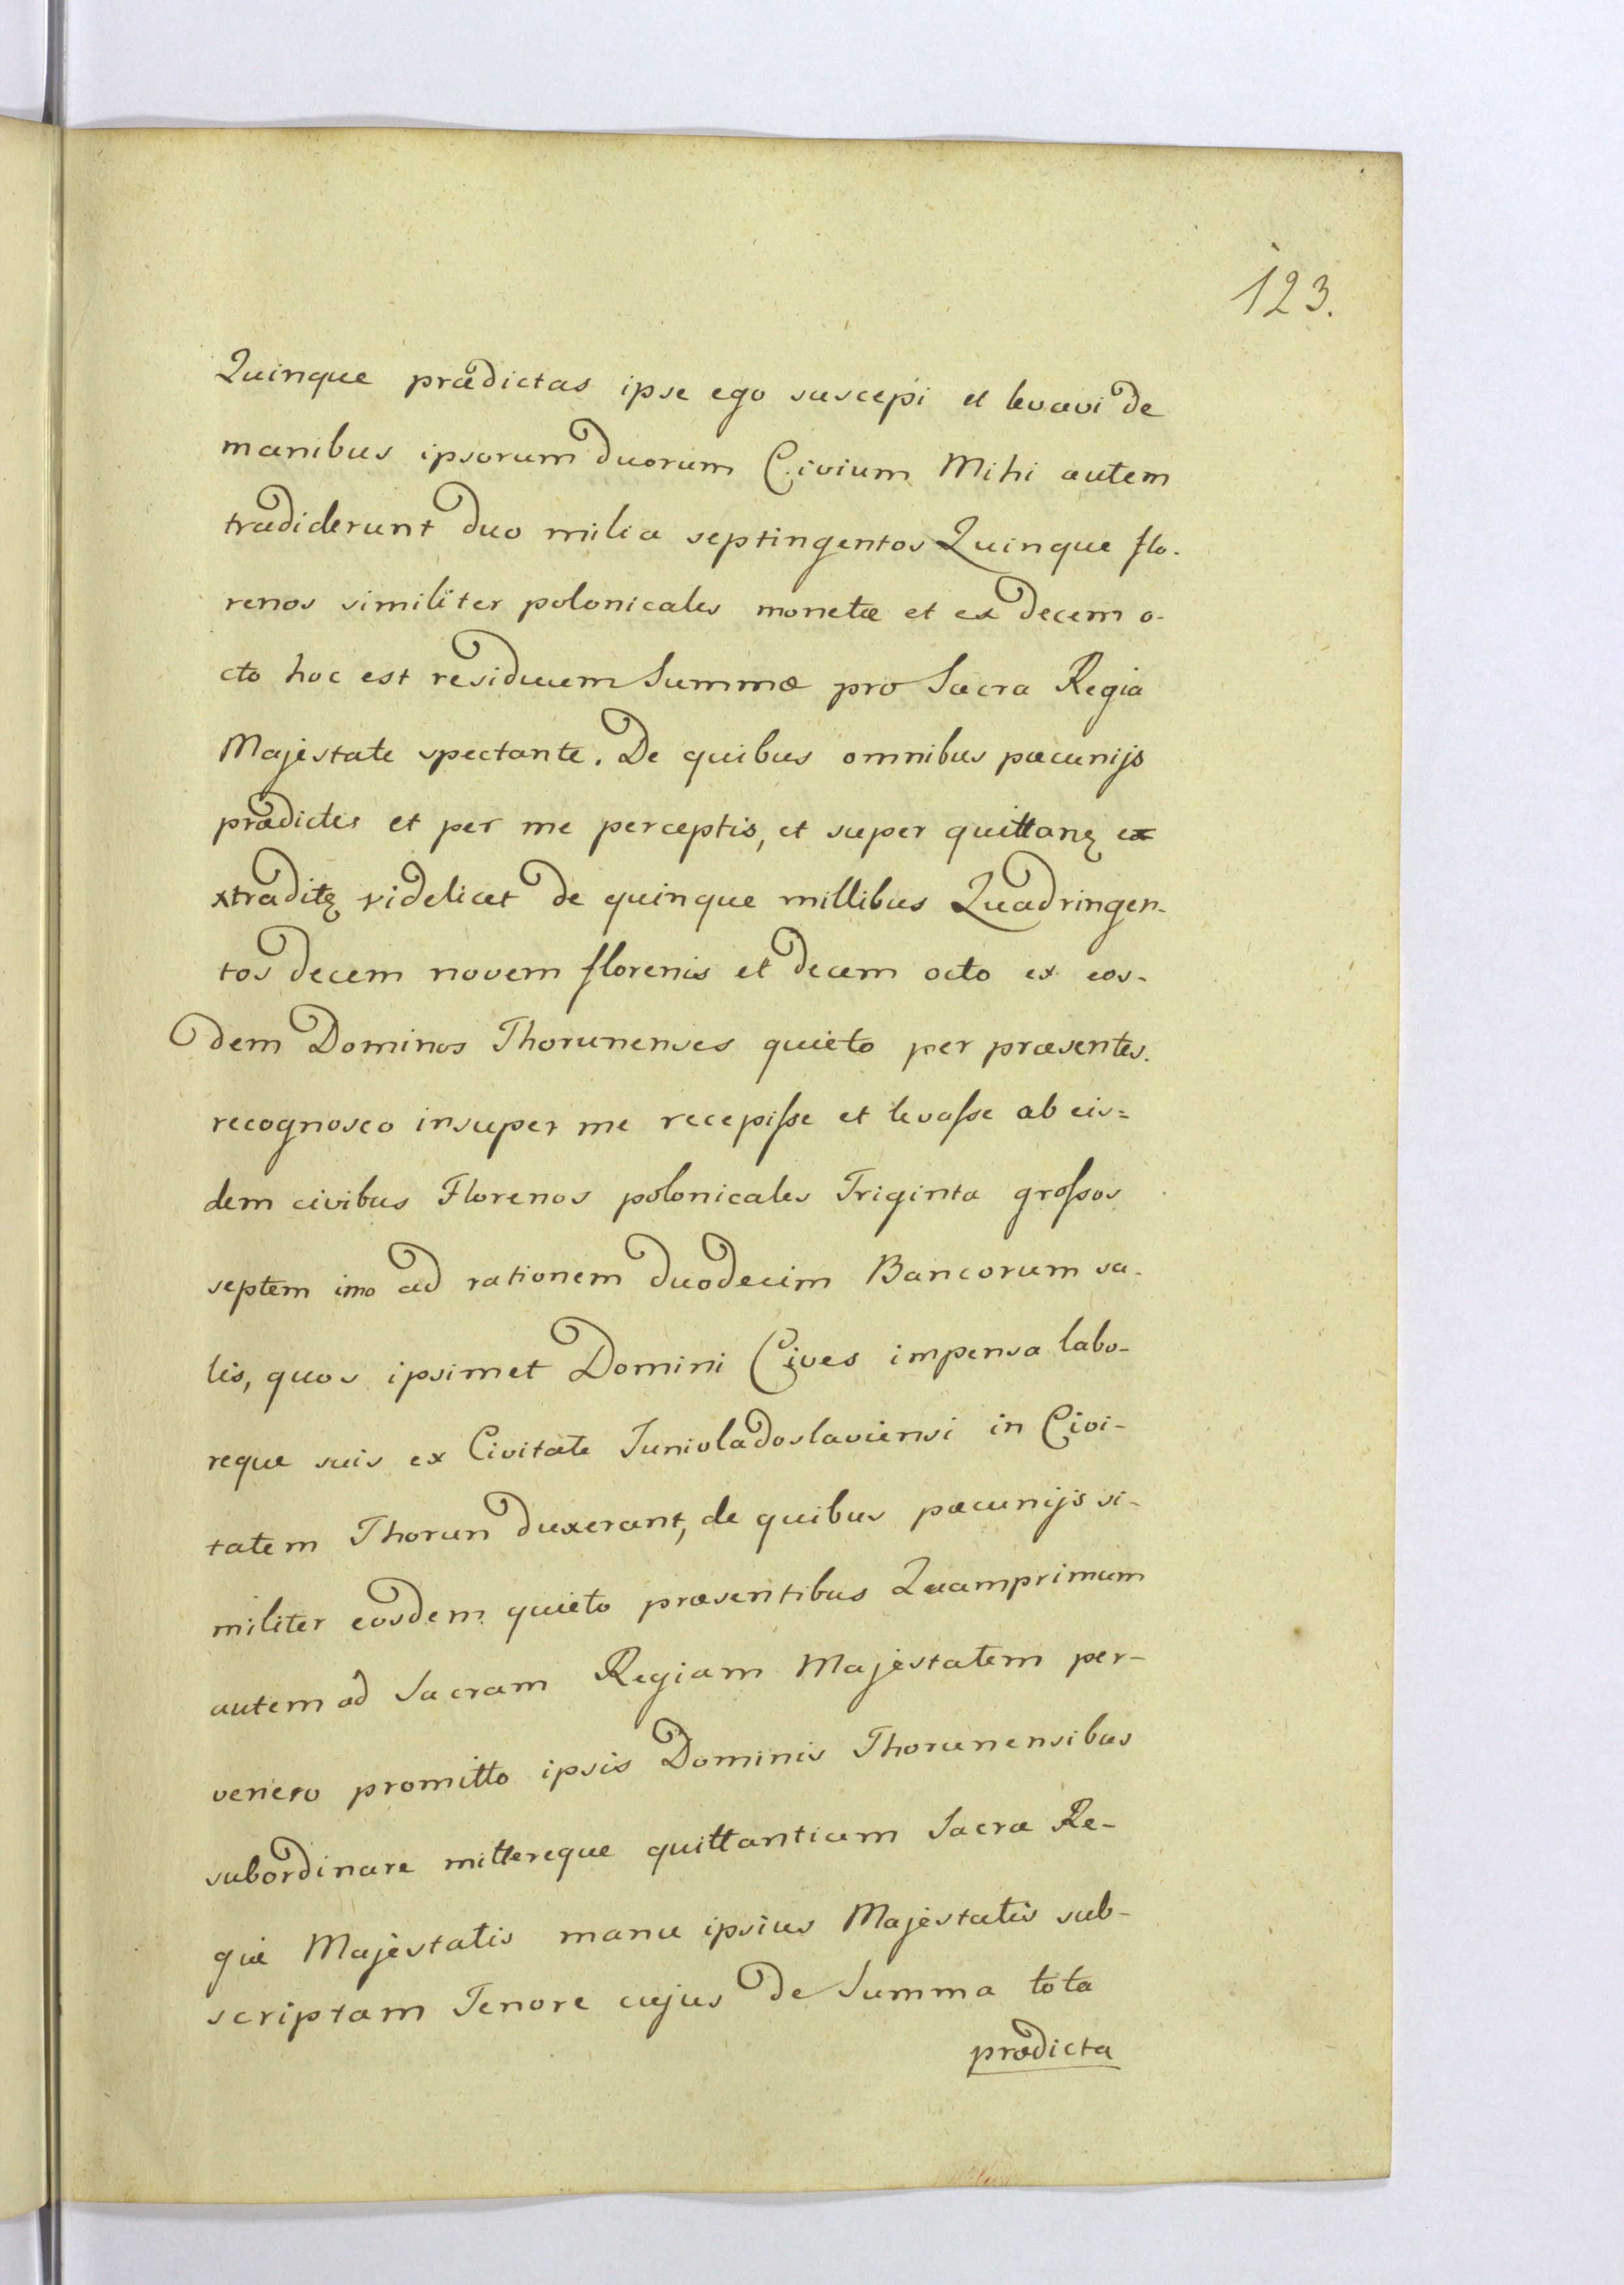 123.
Quinque prædictas ipse ego suscepi et levavi de
manibus ipsorum duorum Civium Mihi autem
tradiderunt duo milia septingentos Quinque flo-
renos similiter polonicales monetæ et ex decem o-
cto hoc est residuum Summæ pro Sacra Regia
Majestate spectante. De quibus omnibus pæcunijs
prædictis et per me perceptis, et super quittanȩ ex
xtraditȩ videlicet de quinque millibus Quadringen-
tos decem novem florenis et decem octo ex eos-
dem Dominos Thorunenses quieto per præsentes.
recognosco insuper me recepiſse et levaſse ab eis=
dem civibus Florenos polonicales Triginta groſsos
septem imo ad rationem duodecim Bancorum sa-
lis, quos ipsimet Domini Cives impensa labo-
reque suis ex Civitate Junivladoslaviensi in Civi-
tatem Thorun duxerant, de quibus pæcunijs si-
militer eosdem quieto præsentibus Quamprimum
autem ad Sacram Regiam Majestatem per-
venero promitto ipsis Dominis Thorunensibus
subordinare mittereque quittantiam Sacræ Re-
giæ Majestatis manu ipsius Majestatis sub-
scriptam Tenore cujus de Summa tota
prædicta